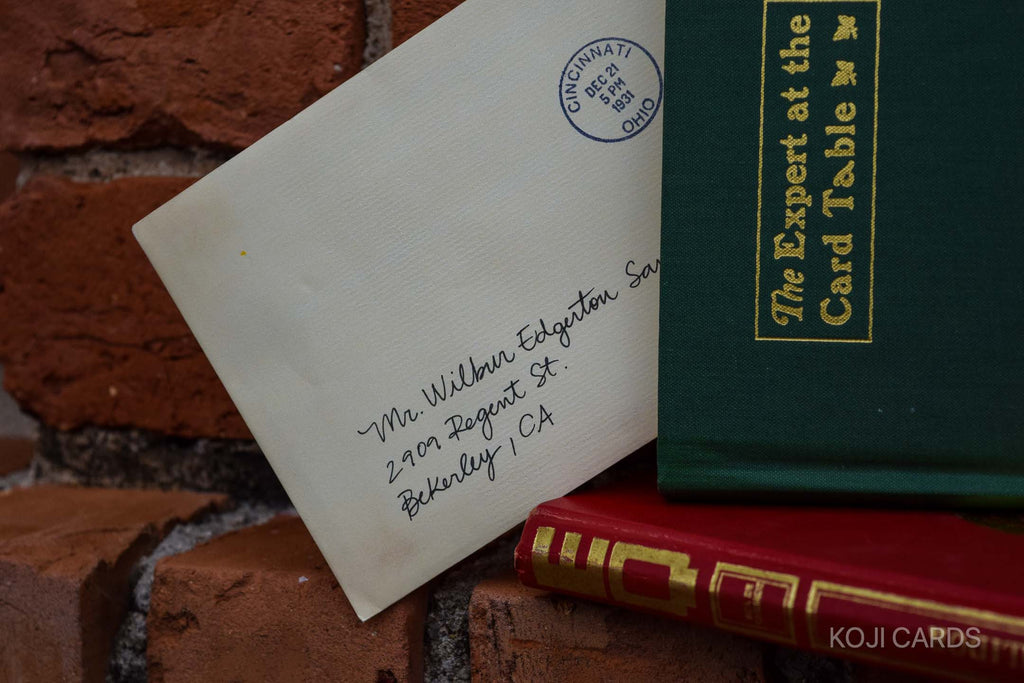 CINCINNATI
DEC 21
5 PM
1931
OHIO
Mr. Wilbur Edgerton
2909 Regent St.
Bekerley, CA
The Expert at the
Card Table
KOJI CARDS